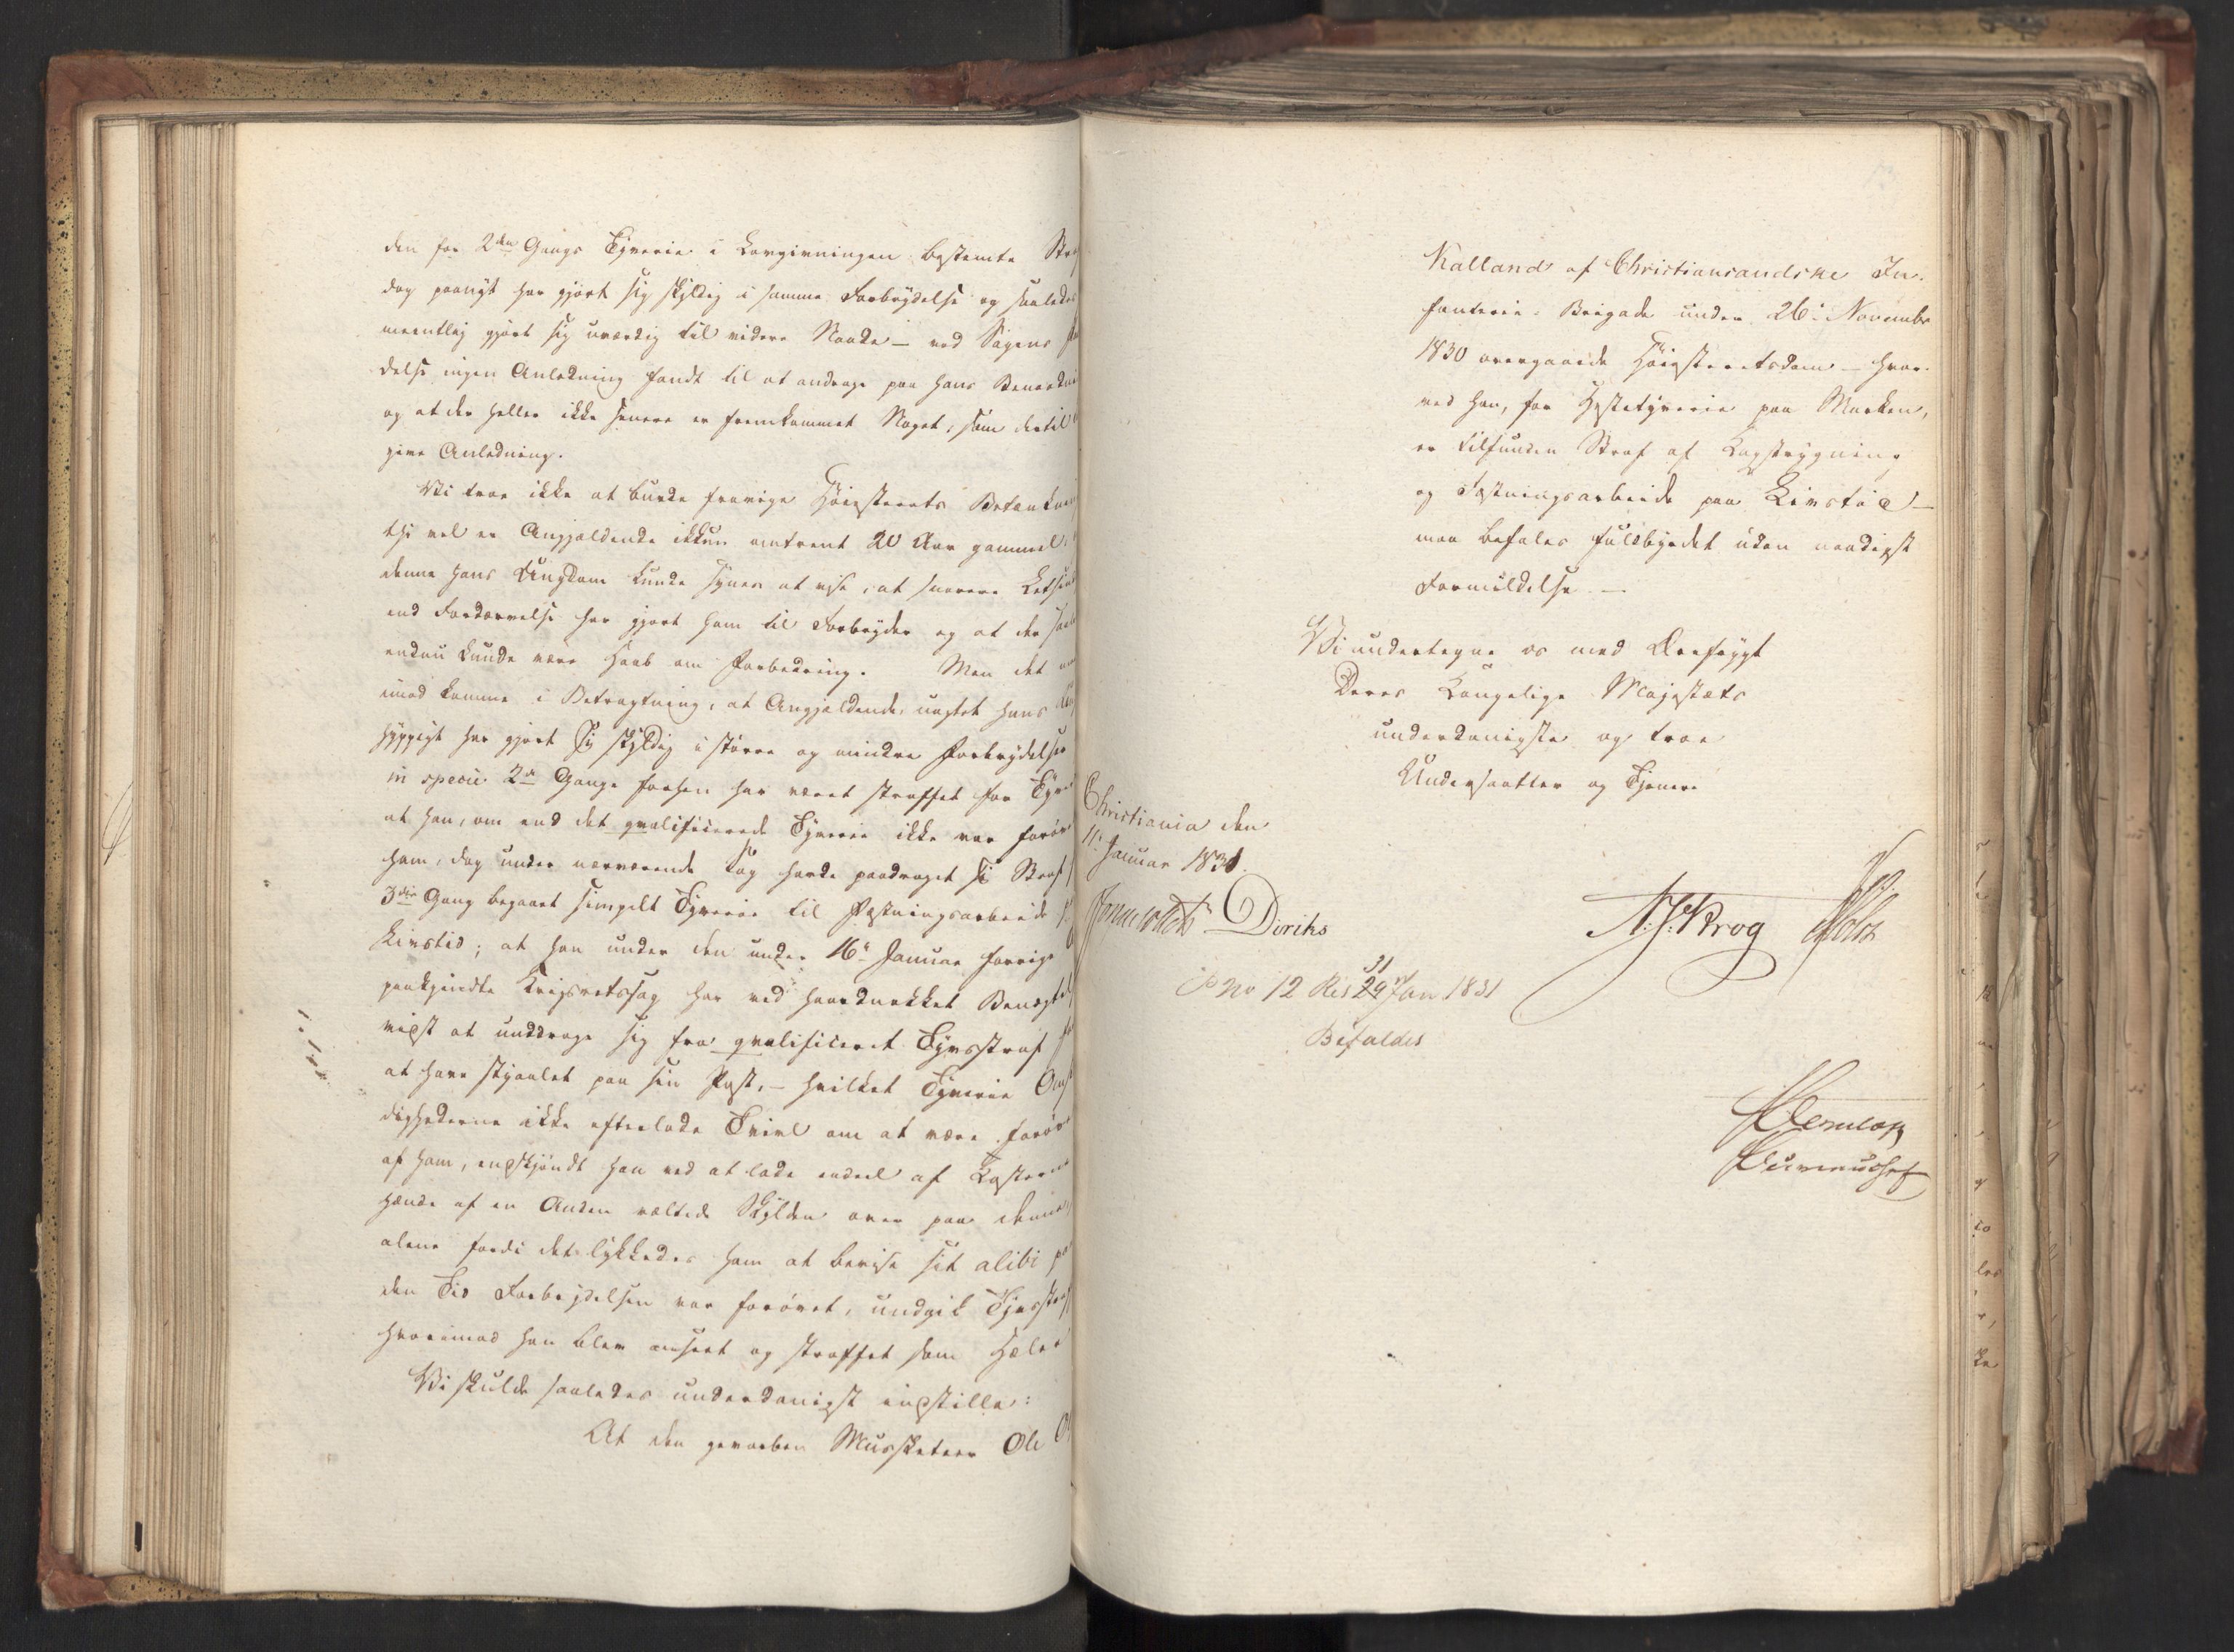 den for 2den Gangs Tyverie i Lovgivningen bestemte
dog paanyt har gjort sig skyldig i samme Forbrydelse og saaledes
gjort sig uværdig til videre Naade – ved Sagens
delse ingen Anledning fandt til at andrage paa hans
og at der heller ikke senere er fremkommet Noget, som dertil
give Anledning.
Vi troe ikke at burde fravige Høiesterets
thi vel er Angjældende ikkun omtrent 20 Aar gammel,
denne hans Ungdom kunde synes at vise, at snarere
end Fordærvelse har gjort ham til Forbryder og at der
endnu kunde være Haab om Forbedring. Men det
imod komme i Betragtning, at Angjældende, uagtet hans
hyppigt har gjort sig skyldig i større og mindre Forbrydelser
in specie 2de Gange forhen har været straffet for
at han, om end det qvalificerede Tyverie ikke var
ham, dog under nærværende Sag havde paadraget sig Straf
3die Gang begaaet simpelt Tyverie til Fæstningsarbeide
Livstid; at han under den under 16de Januar forrige
paakjendte Krigsretssag har ved haardnakket
vidst at unddrage sig fra qvalificeret Tyvsstraf
at have stjaalet paa sin Post, – hvilket Tyverie
dighederne ikke efterlade Tvivl om at være
af ham, endskjøndt han ved at lade endeel af
hænde af en Anden væltede Skylden over paa denne,
alene fordi det lykkedes ham at bevise sit alibi
den Tid Forbrydelsen var forøvet, undgik
hvorimod han blev anseet og straffet som Hæler
Vi skulde saaledes underdanigst indstille:
At den gevorben Musketeer Ole
Kalland af Christiansandske In-
fanterie-Brigade under 26de November
1830 overgaaede Høiesteretsdom – hvor-
ved han, for Hestetyverie paa Marken,
er tilfunden Straf af Kagstrygning
og Fæstningsarbeide paa Livstid –
maa befales fuldbyrdet uden naadigst
Formildelse. –
Vi undertegne os med Ærefrygt
Deres Kongelige Majestæts
underdanigste og troe
Undersaatter og Tjenere
Christiania den
11te Januar 1831.
Diriks
N. J. Krog
No 12 Res 29 31 Jan 1831
Befaldes